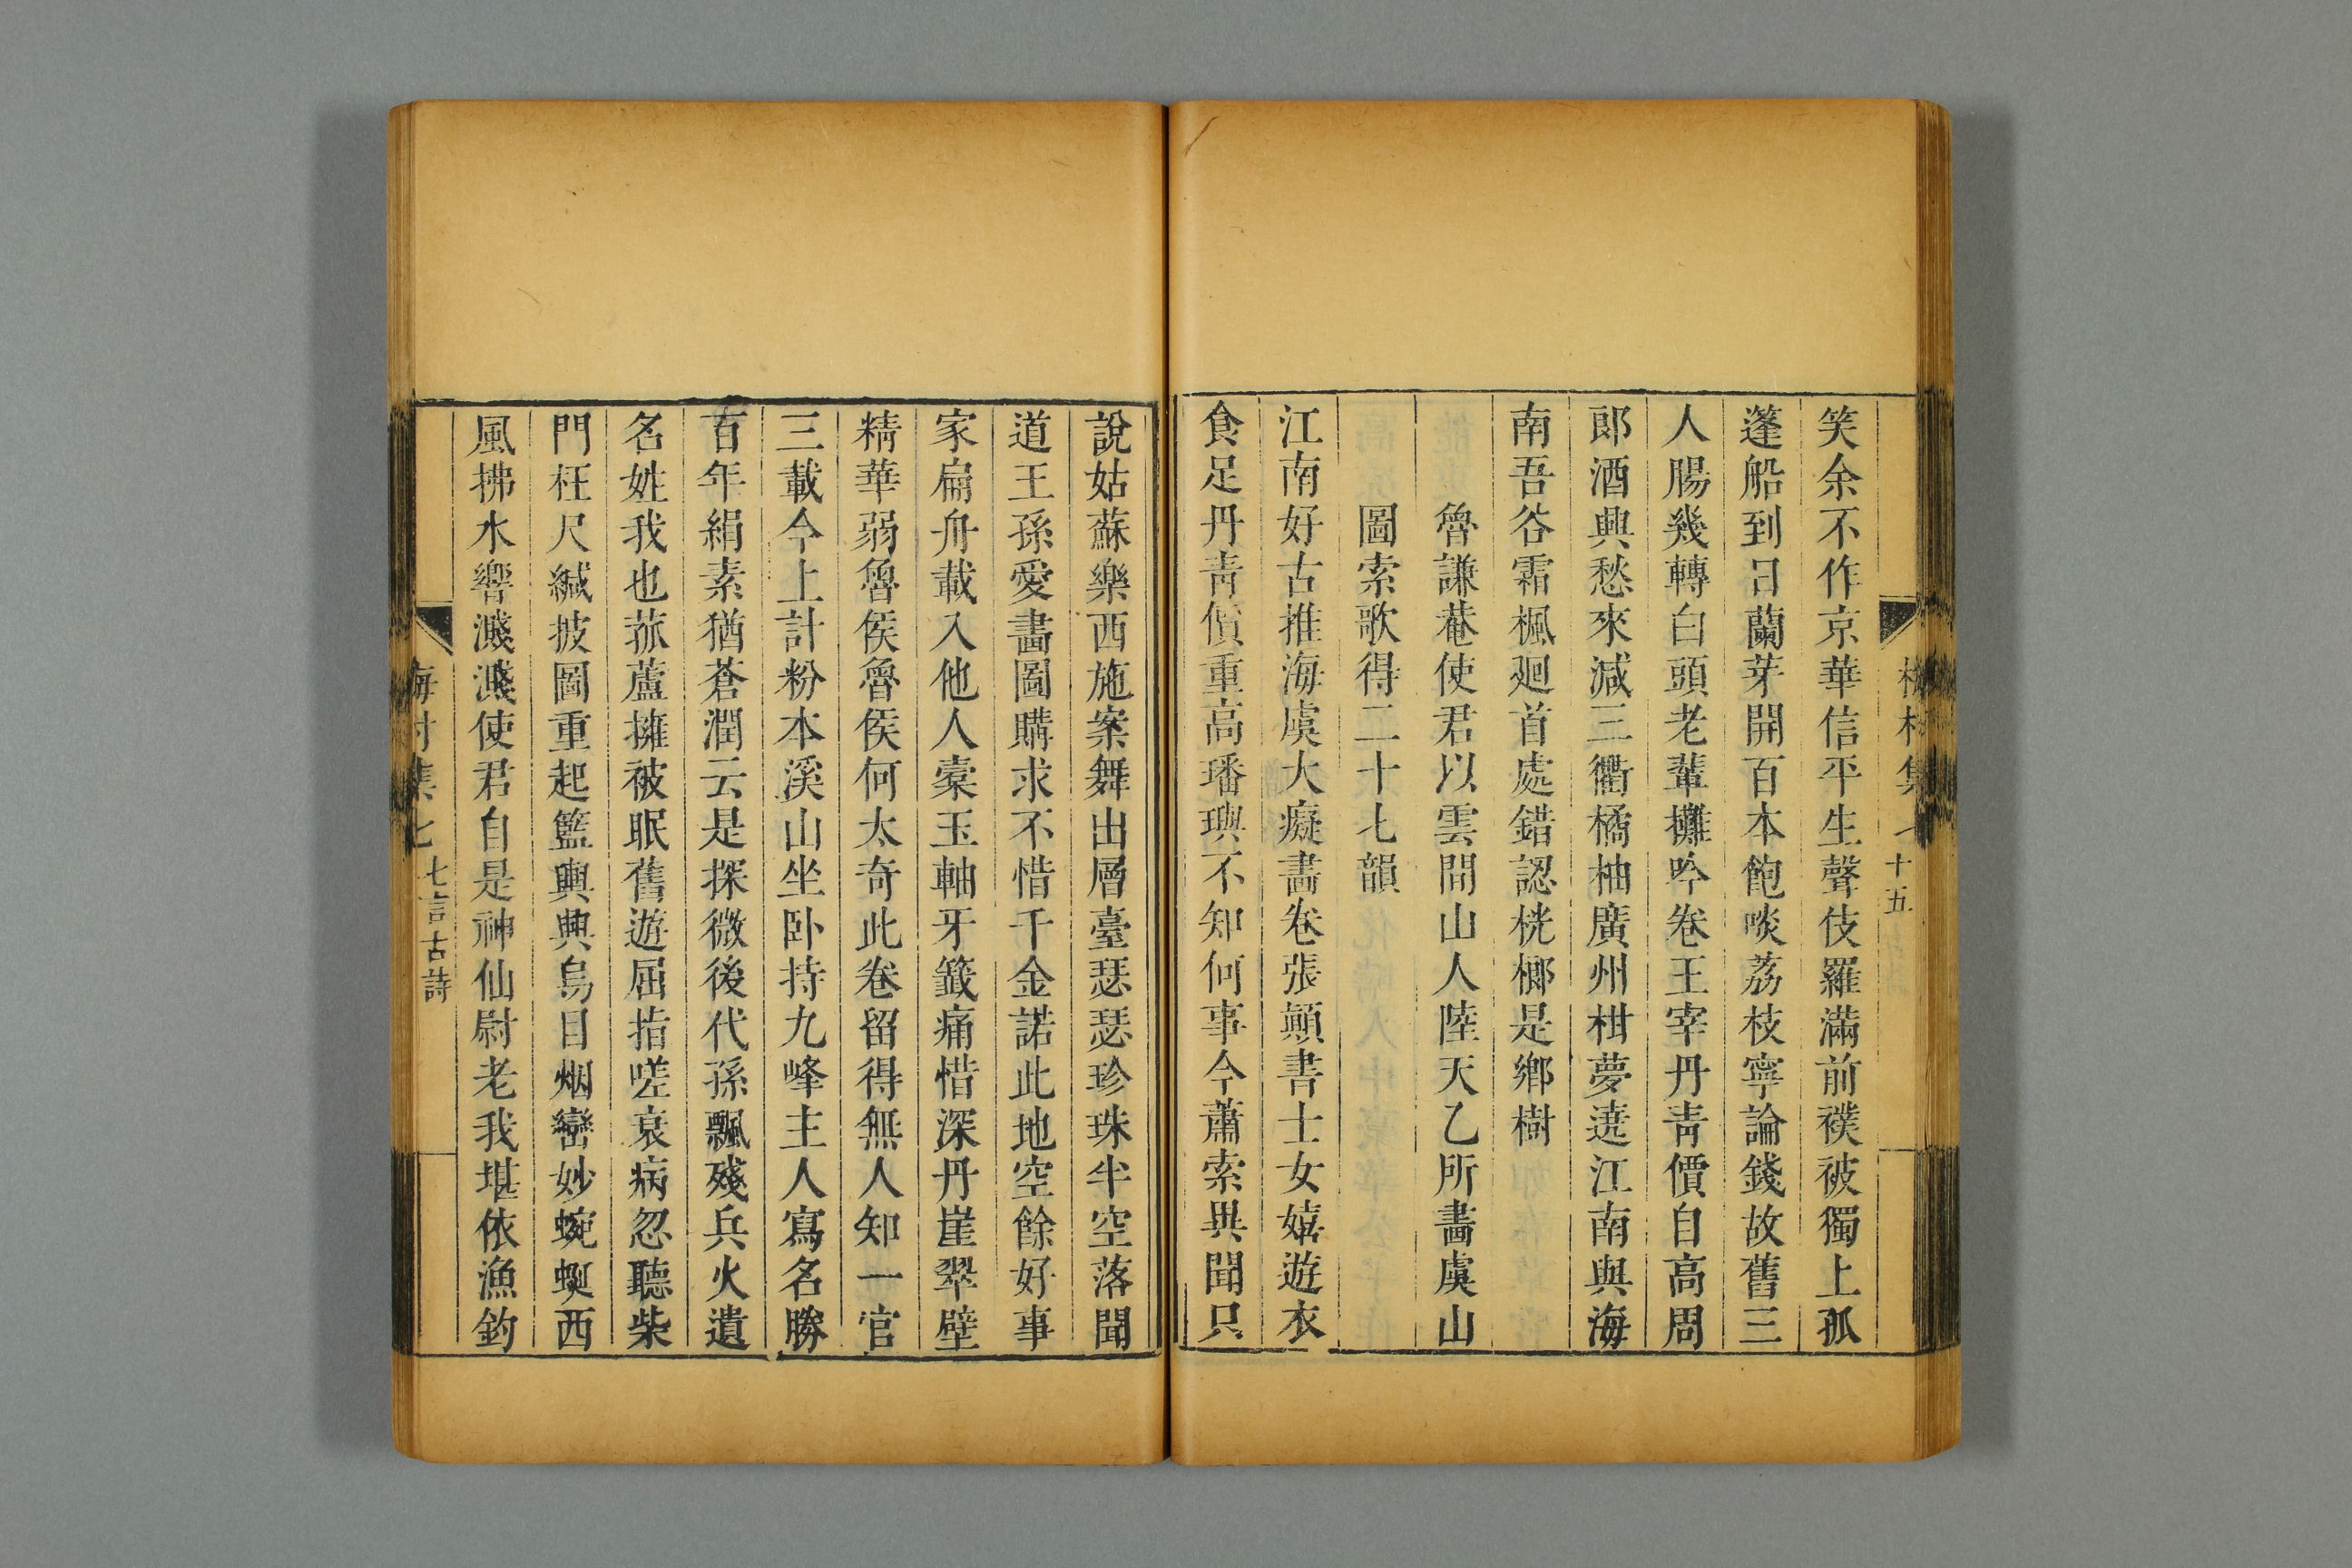 笑余不作京華信平生聲伎羅滿前襆被獨上孤
蓬船到日蘭芽開百本飽啖荔枝寧論錢故舊三
人腸幾轉白頭老輩攤吟卷王宰丹青價自高周
郎酒興愁來減三衢橘柚廣州柑夢遶江南與海
南吾谷霜楓廻首處錯認桄榔是鄉樹
魯謙菴使君以雲間山人陸天乙所畵虞山
圖索歌得二十七韻
江南好古推海虞大癡畵卷張顛書士女嬉遊衣
食足丹青價重高璠璵不知何事今蕭索異聞只
說姑蘇樂西施案舞出層臺瑟瑟珍珠半空落聞
道王孫愛畵圖購求不惜千金諾此地空餘好事
家扁舟載入他人橐玉軸牙籤痛惜深丹崖翠壁
精華弱魯侯魯侯何太奇此卷留得無人知一官
三載今上計粉本溪山坐卧持九峰主人寫名勝
百年絹素猶蒼潤云是探微後代孫飄殘兵火遺
名姓我也菰蘆擁被眠舊遊屈指嗟衰病忽聽柴
門枉尺緘披圖重起籃輿興烏目烟巒妙蜿蜒西
風拂水響濺濺使君自是神仙尉老我堪依漁釣
梅村集 七 十五
梅村集 七 七言古詩